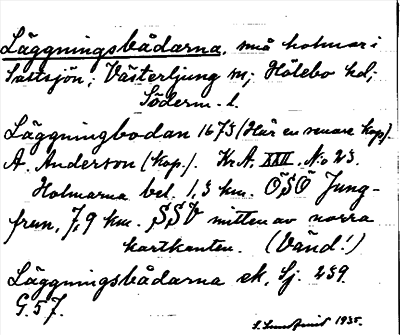 Läggningsbådarna, små holmar i
Saltsjön; Västerljung sn; Hölebo hd;
Söderm. l.
Läggningbodan 1673 (Här en senare kop).
A. Anderson (kop.). Kr.A. XXII. No 23.
Holmarna bel. 1,3 km. ÖSÖ Jung-
frun, 7,9 km. SSV mitten av norra
kartkanten. (Vänd!)
Läggningsbådarna ek. Sj. 259.
G. 57.
1935.